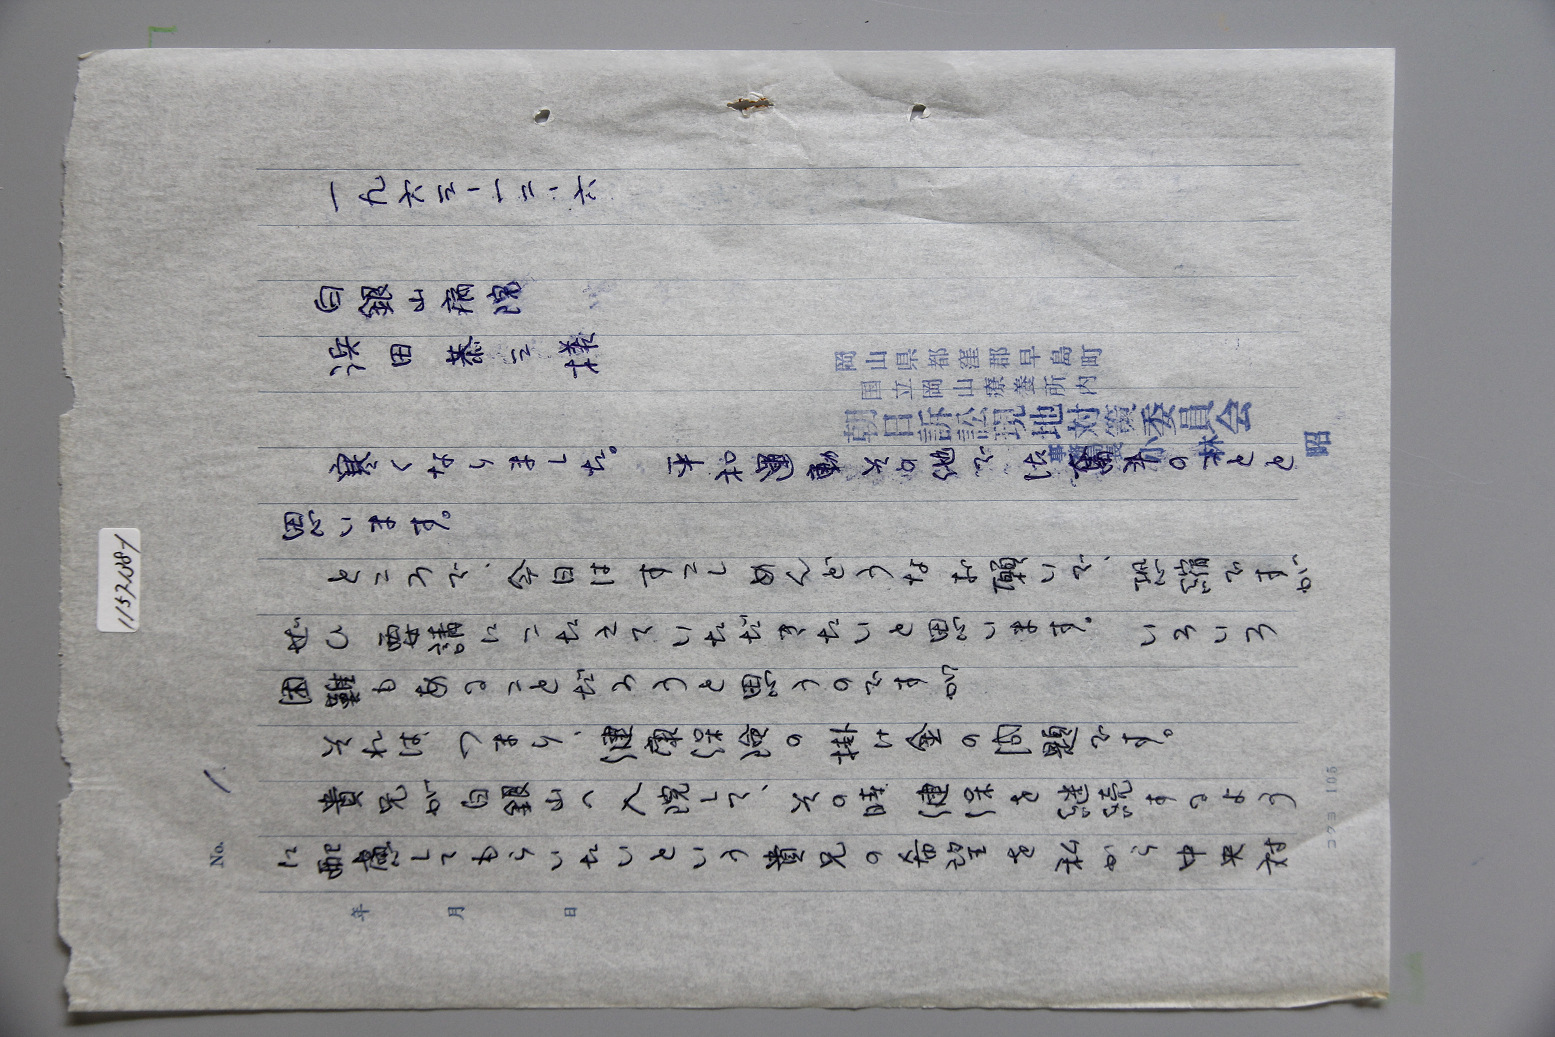 一九六三・一二・六
白銀山病院
浜田 三 様
岡山県都窪郡早島町
国立岡山療養所内
朝日訴訟現地対策委員会
小林 昭
寒くなりました。平和運動その他で 奮斗のことと
思います。
ところで、今日はすこしめんどうなお願いで、恐縮ですが
ぜひ要請にこたえていただきたいと思います。いろいろ
困難もあることだろうと思うのですが
それは、つまり、健康保険の掛け金の問題です。
貴兄が白銀山へ入院して、その時健保を継続するよう
に配慮してもらいたいという貴兄の希望を私から中央対
No. 1
年 月 日
コクヨ 105